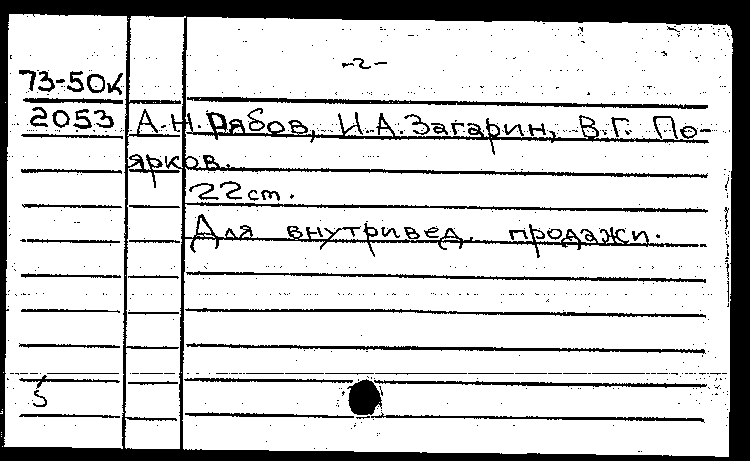 -2-
73-50к
2053 А.Н. Рябов, И.А. Загарин, В.Г. По-
ярков.
22 cm.
Для внутривед. продажи.
5